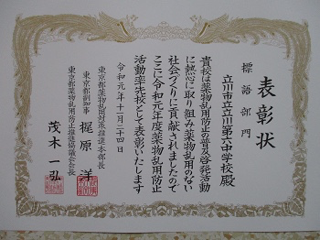 表彰状
標語部門
立川市立立川第六中学校殿
貴校は薬物乱用防止の普及啓発活動
に熱心に取り組み薬物乱用のない
社会づくりに貢献されましたので
ここに令和元年度薬物乱用防止
活動率先校として表彰いたします
令和元年十二月二十四日
東京都薬物乱用対策推進本部長
東京都副知事 梶原 洋
東京都薬物乱用防止推進協議会会長
茂木 一弘